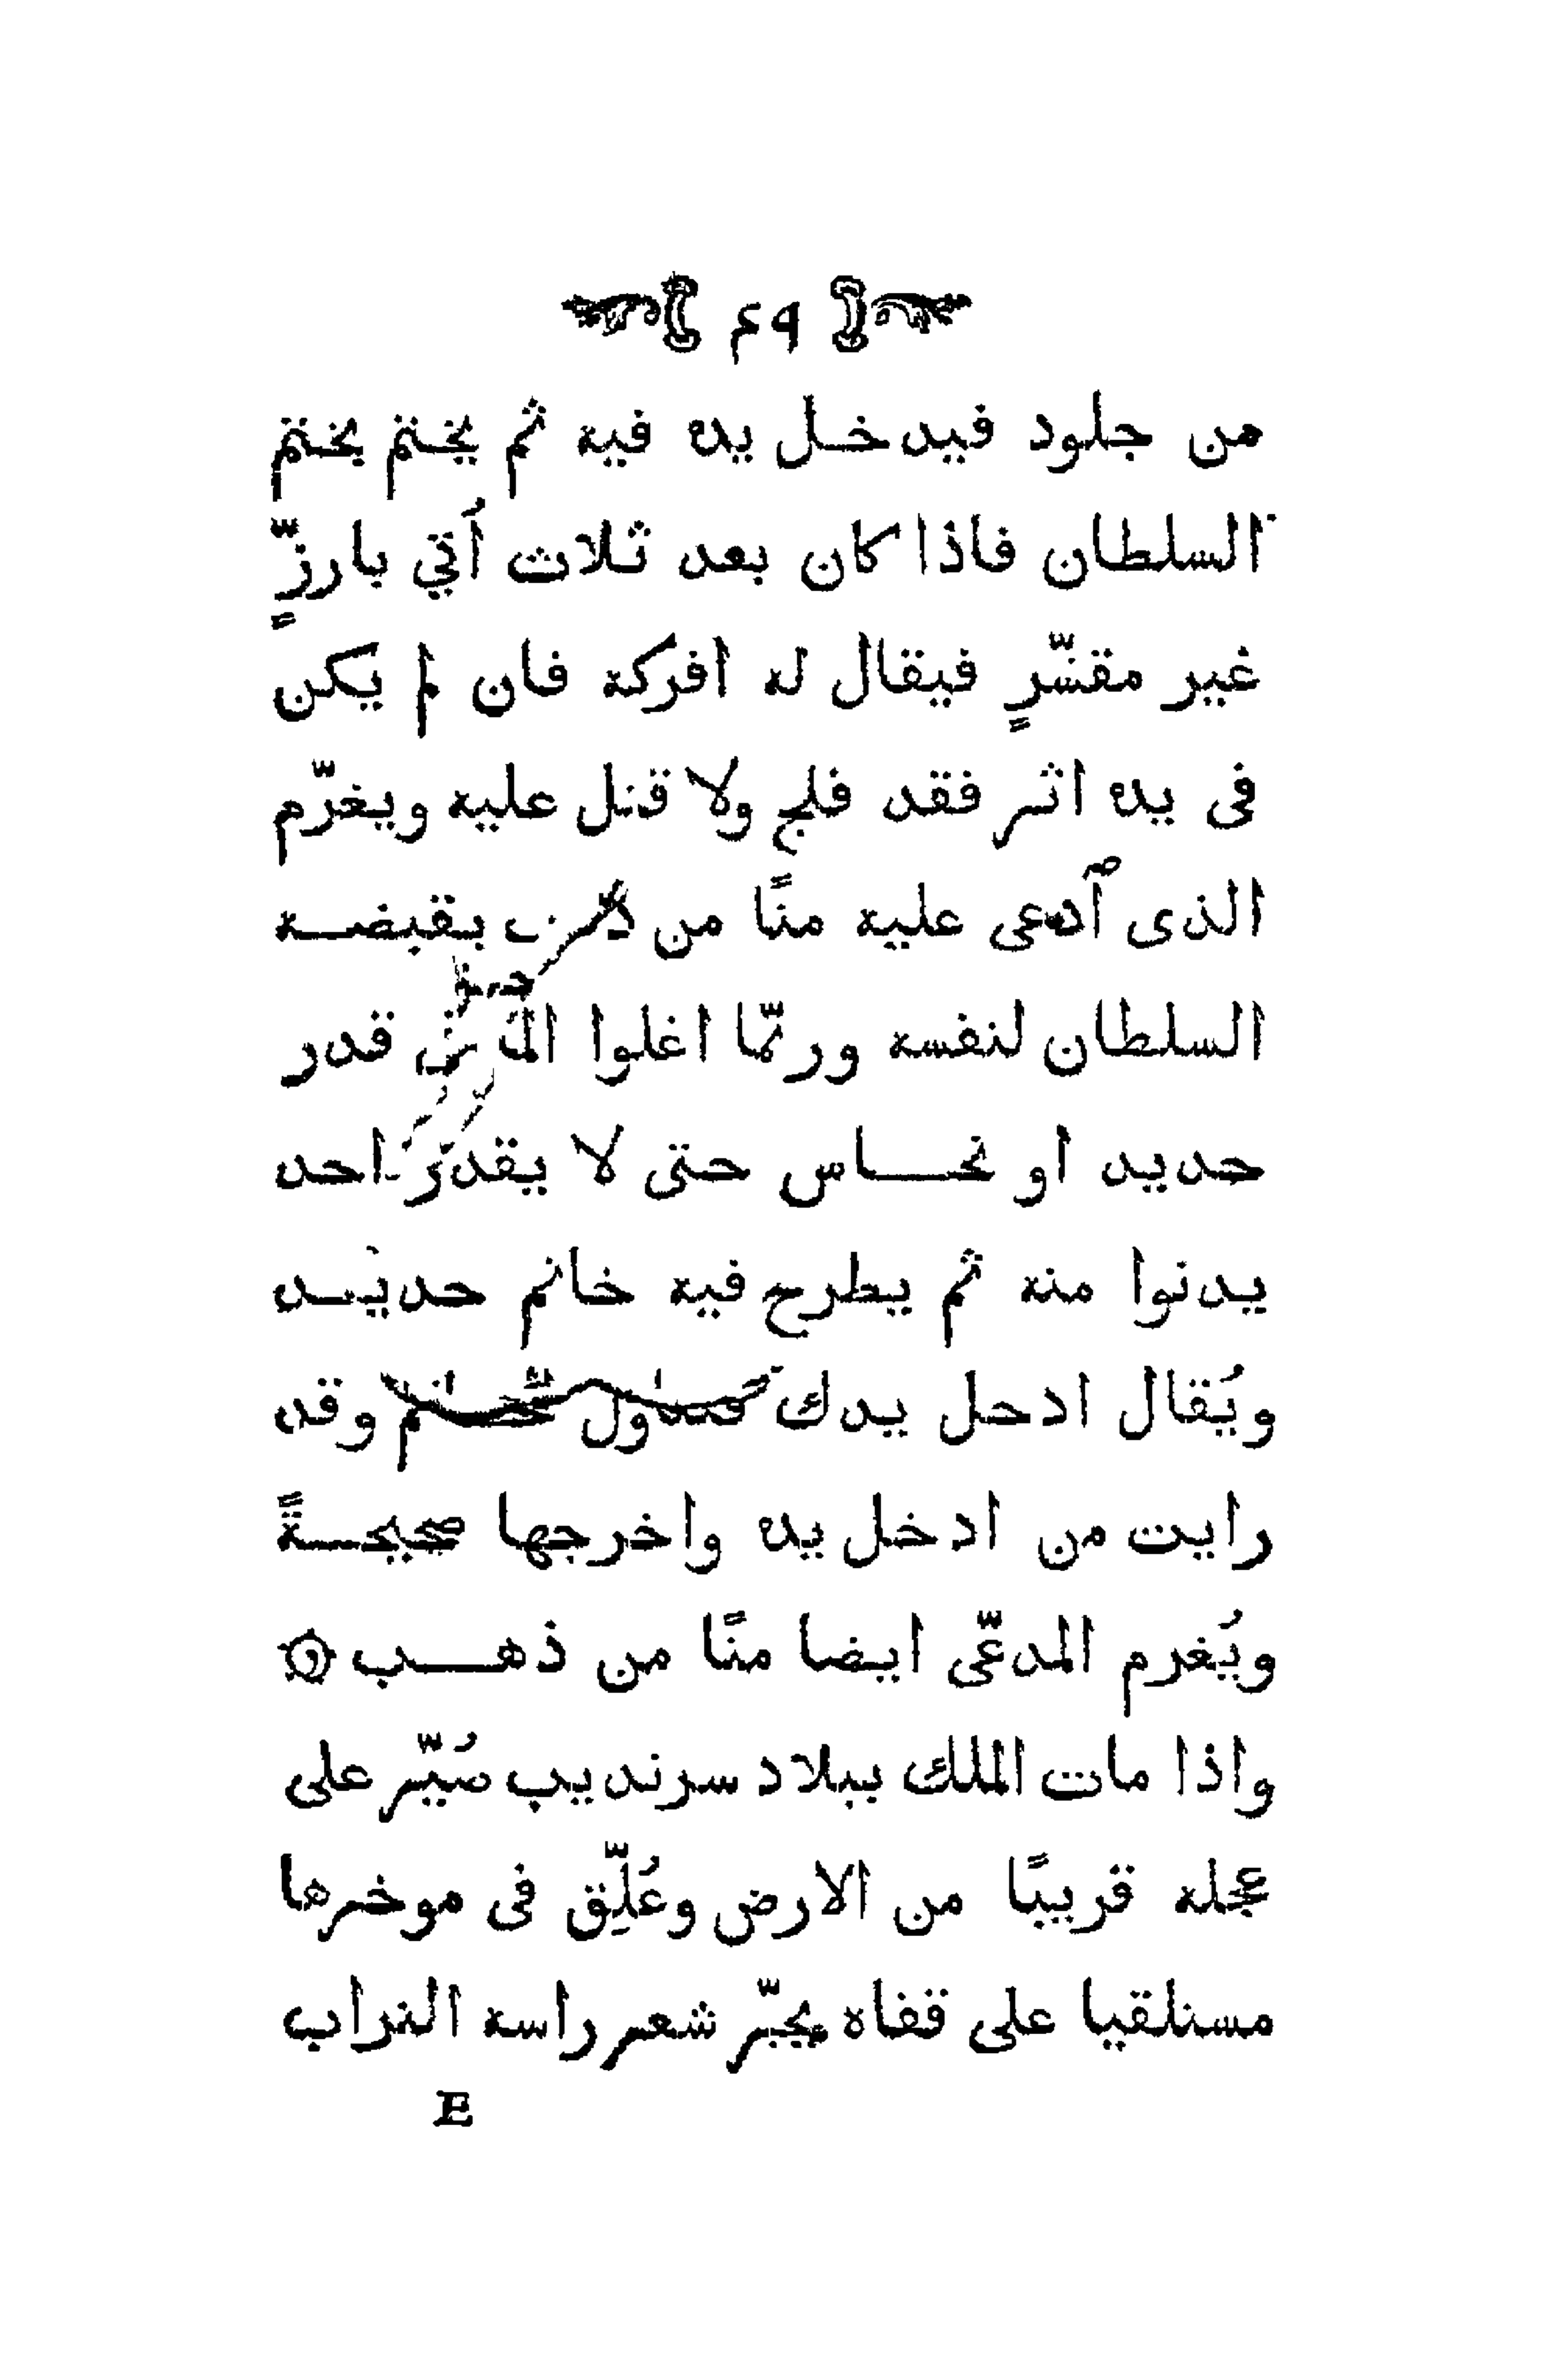 ٤٩
من جلود فيدخل يده فيه ثم يختم بختم
السلطان فاذا كان بعد ثلاث أتي بارزٍّ
غير مقشّرٍ فيقال له افركه فان لم يكن
فى يده اثر فقد فلج ولا قتل عليه ويغرّم
الذى ٱدعى عليه منًّا من يقبضه
السلطان لنفسه وربّما اغلوا الما فى قدر
حديد او نحاس حتى لا يقدر احد
يدنوا منه ثم يطرح فيه خاتم حديد
ويُقال ادحل يدك فتناول الخاتم وقد
رايت من ادخل يده واخرجها صحيحةً
ويُغرم المدعّى ايضا منًّا من ذهب
واذا مات الملك ببلاد سرنديب صُيّر على
عجله قريبًا من الارض وعُلِّق فى موخرها
مستلقيا على قفاه يجبّر شعر راسه التراب
E